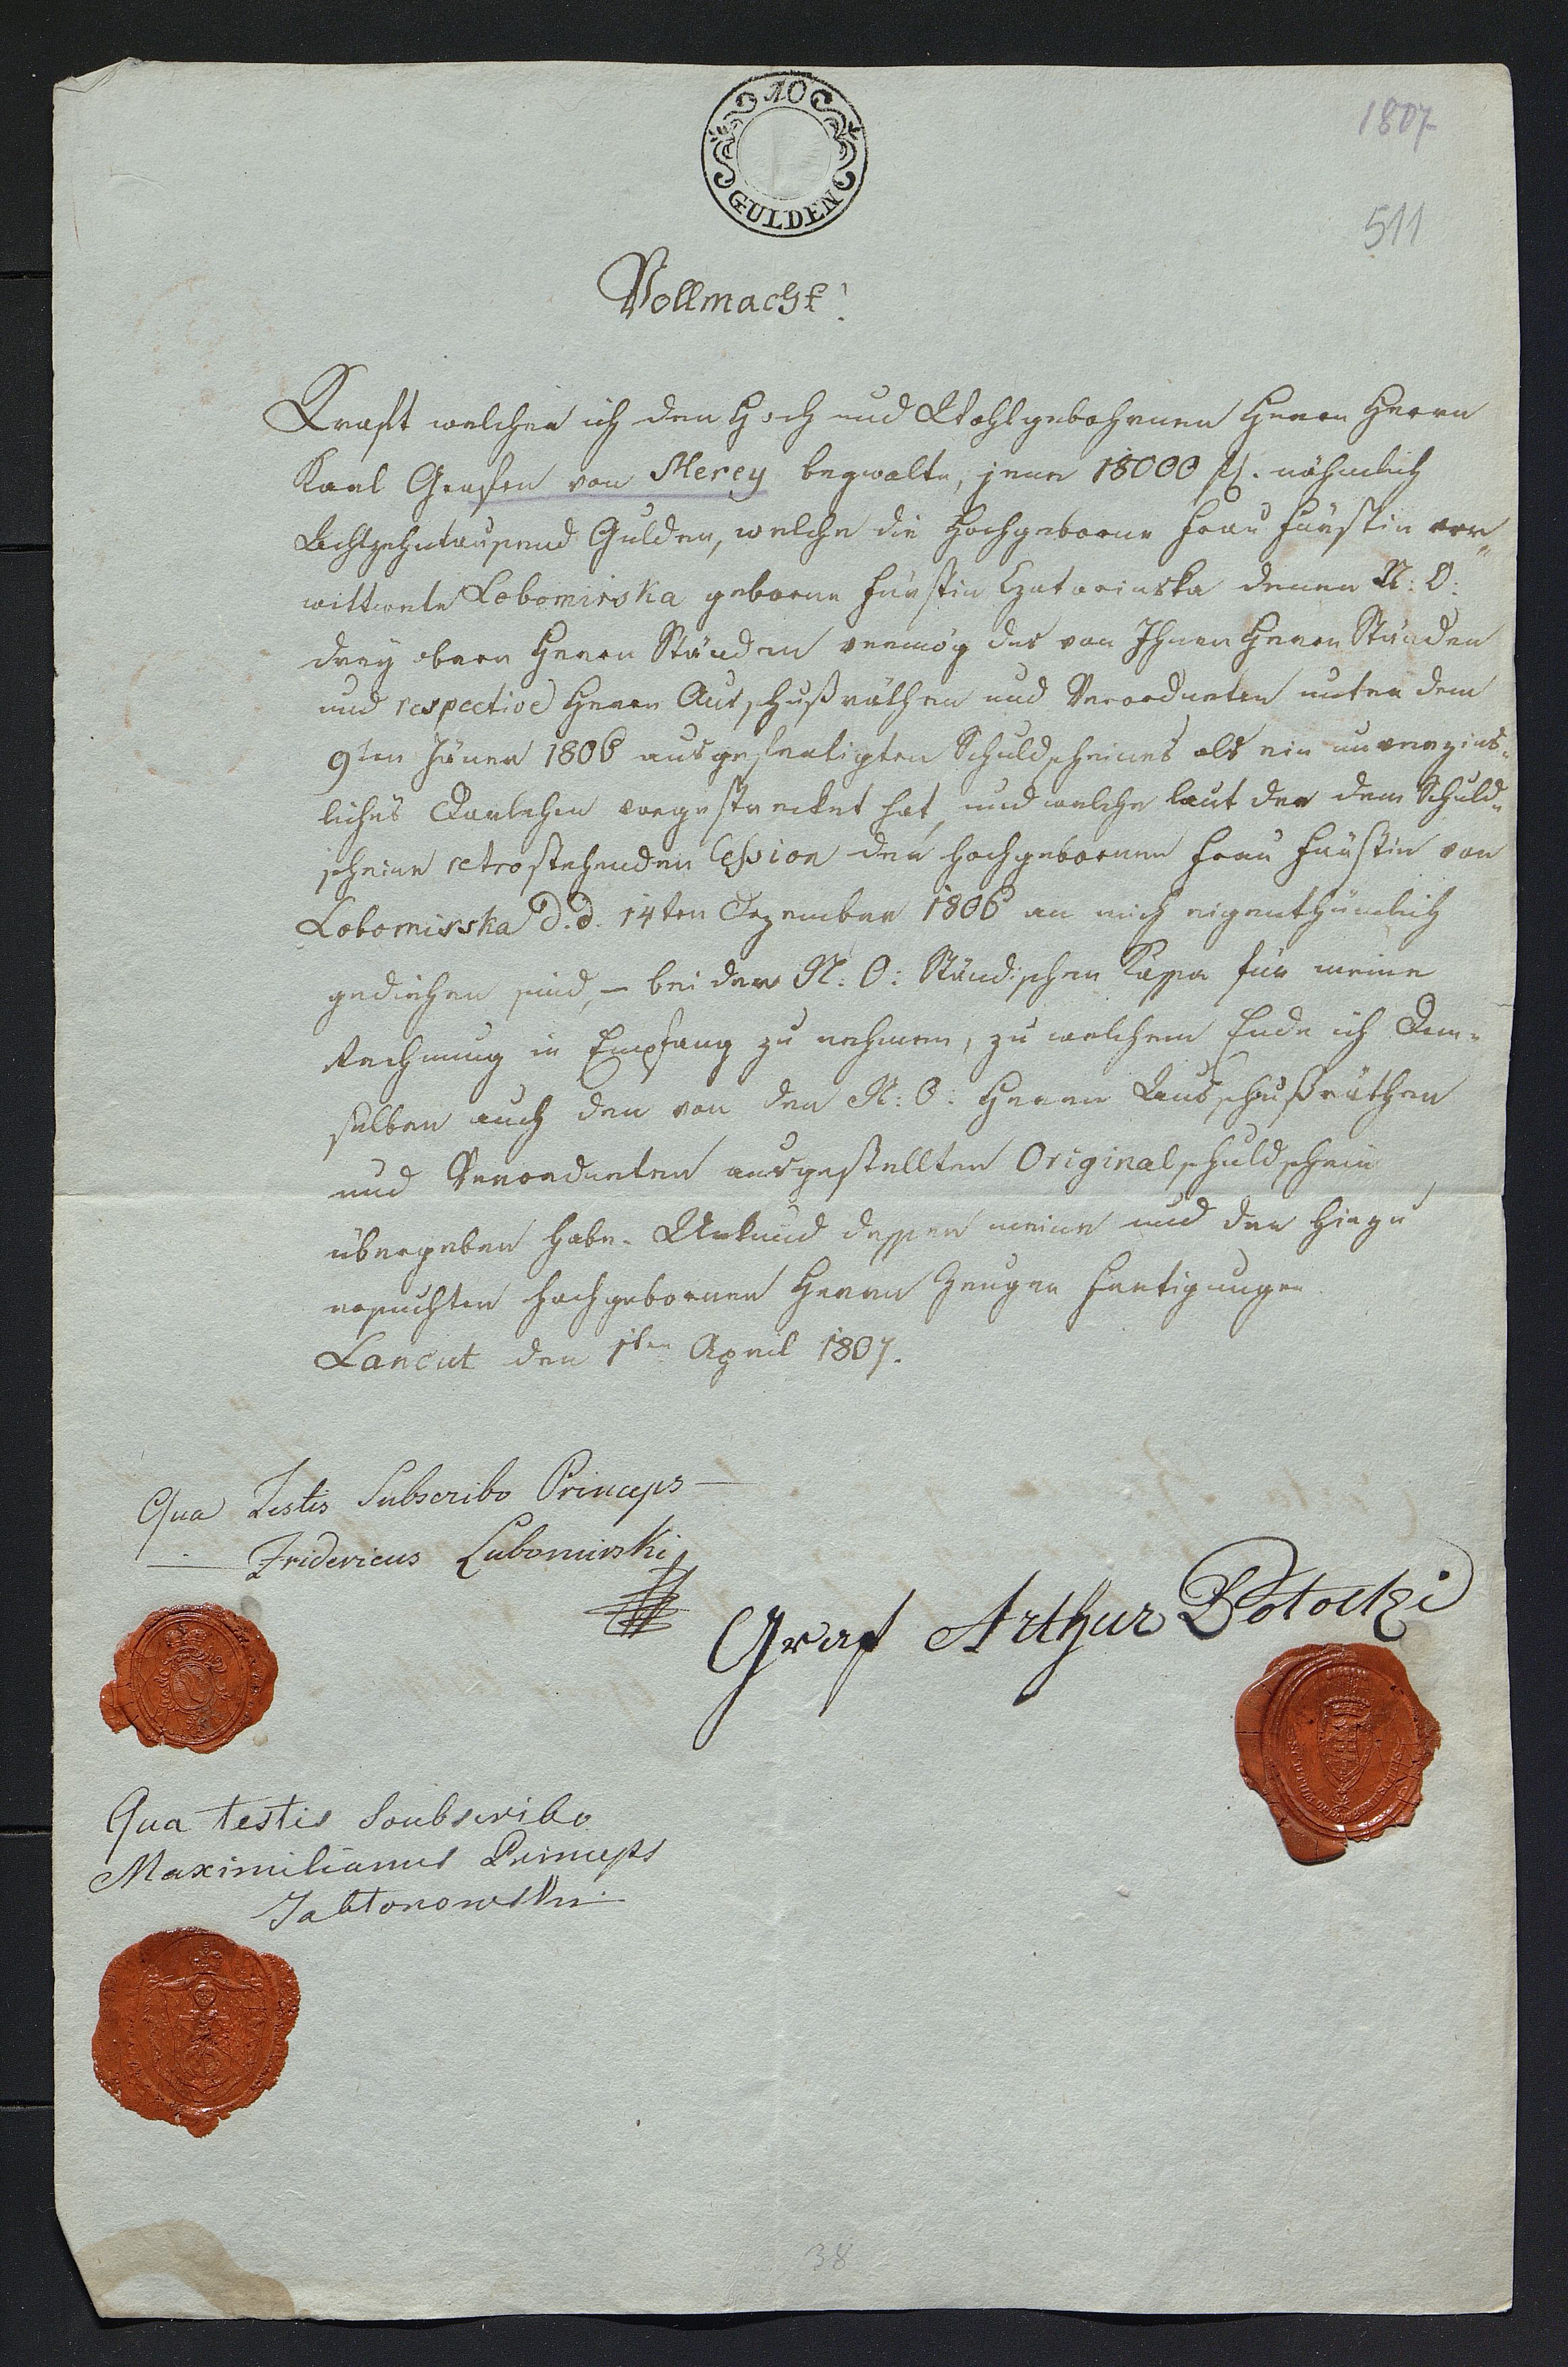 10
GULDEN
1807
511
Vollmacht!
Kraft welcher ich den Hoch und Wohlgebohrnen Herrn Herrn
Karl Grafen von Merey begwalte, jene 18000 fl. nähmlich
Achtzehntausend Gulden, welche die Hochgeborne Frau Fürstin ver"
wittwete Lobomirska geborne Fürstin Czatorinska denen N: O:
drey obern Herrn Ständen vermög des von Ihnen Herrn Ständen
und respective Herrn Ausschußräthen und Verordneten unter dem
9ten Jäner 1806 ausgefertigten Schuldscheines als ein unverzins-
liches Darlehen vorgestrecket hat, und welche laut der dem Schuld-
scheine retrostehenden Cession der hochgebornen Frau Fürstin von
Lobomirska d. d. 14ten Dezember 1806 an mich eigenthümlich
gediehen sind, – bei der N: O: Ständischen Kassa für meine
Rechnung in Empfang zu nehmen, zu welchem Ende ich Dem-
selben auch den von den N: O: Herrn Ausschußräthen
und Verordneten ausgestellten Originalschuldschein
übergeben habe. Urkund dessen meine und der hiezu
ersuchten hochgebornen Herrn Zeugen Fertigungen.
Lancut den 1ten April 1807.
Qua Testis Subscribo Princeps –
– Fridericus Lubomirski
Graf Arthur Pototzki
Qua testis Soubscribo
Maximilianus Princeps
Jabtonowski
38